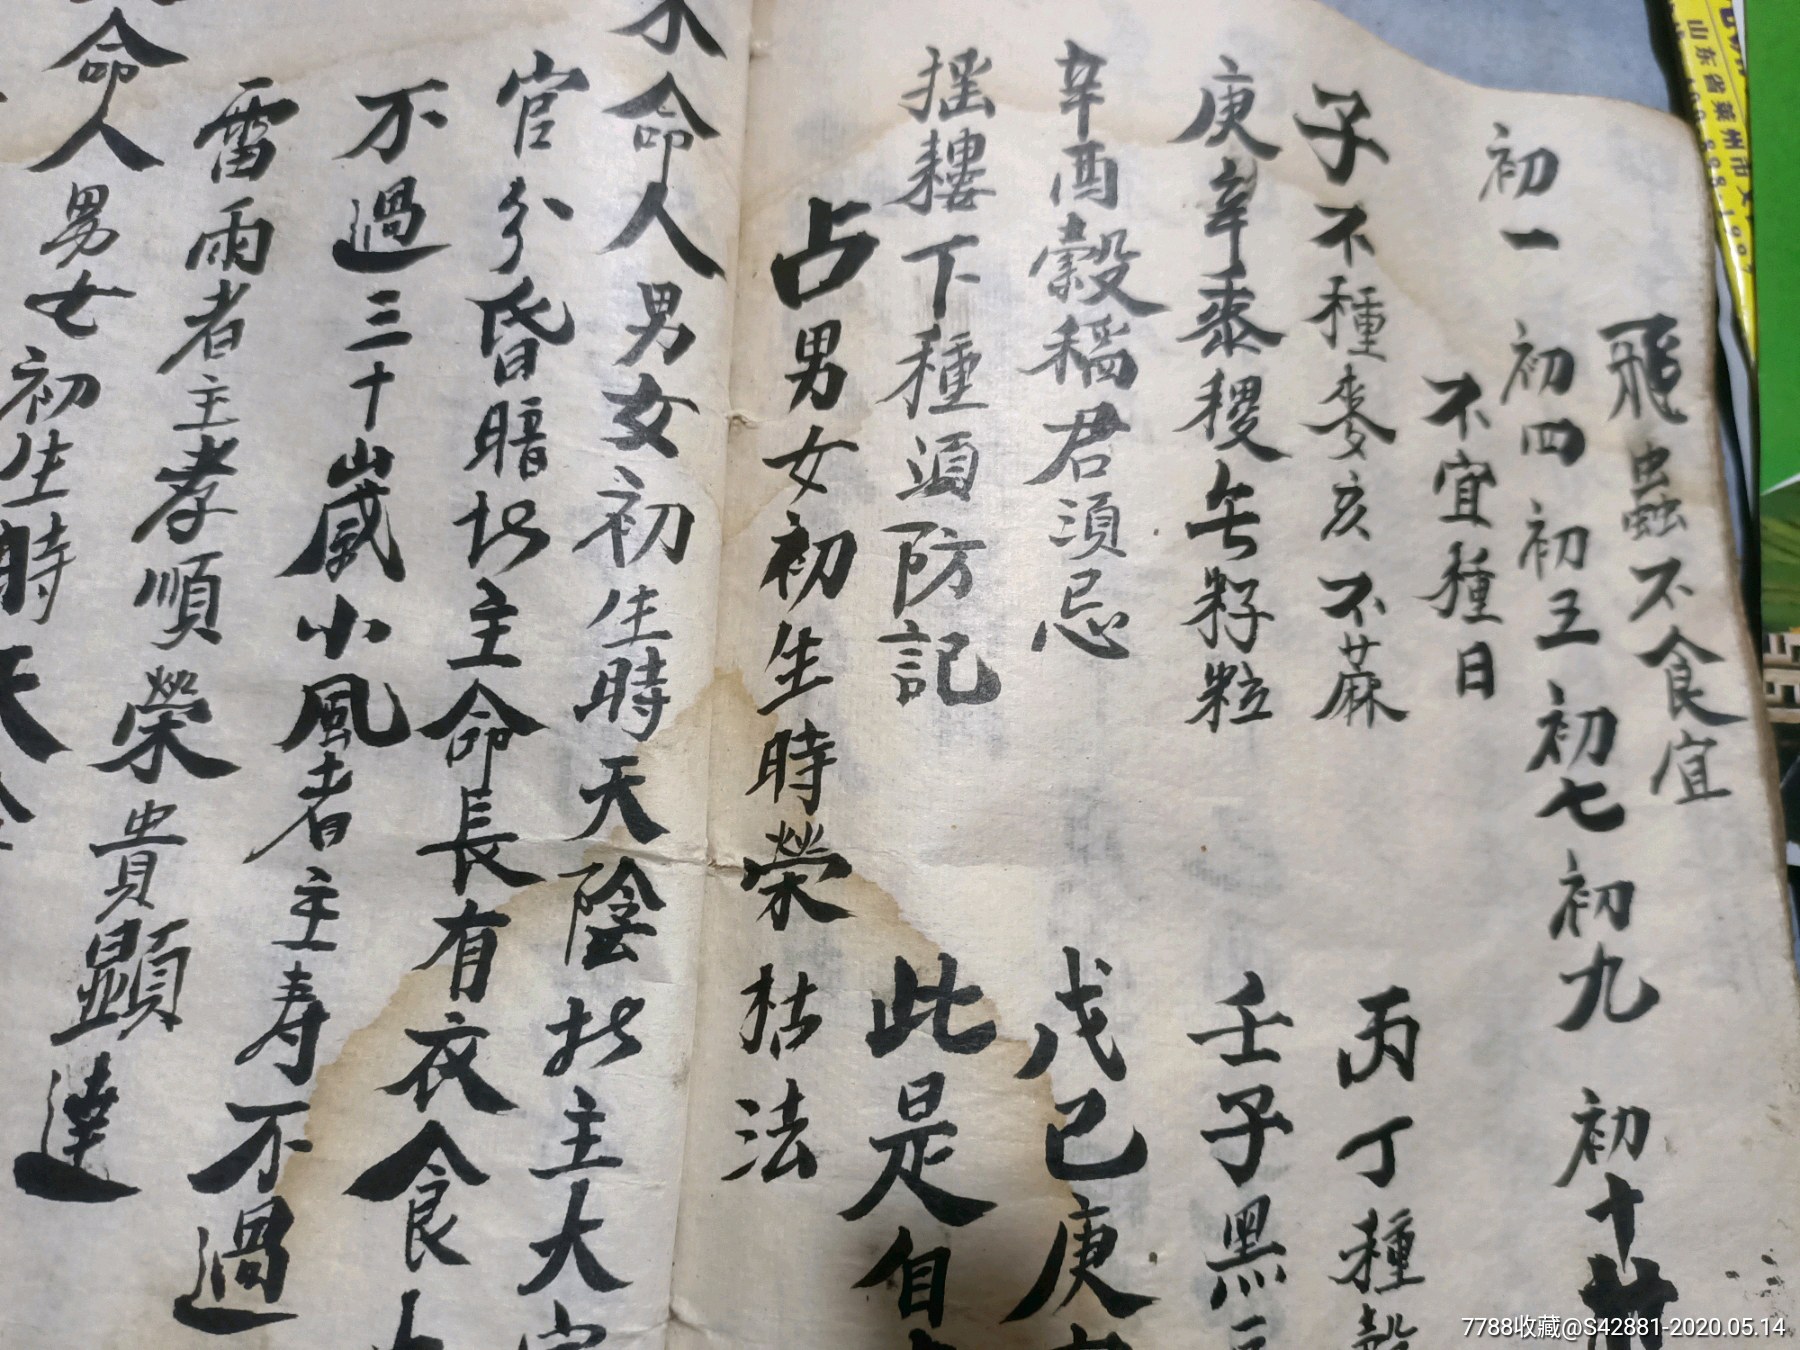 飛蟲不食宜
初一 初四 初五 初七 初九 初十
不宜種日
子不種麥亥不蔴 丙丁種穀
庚辛黍稷無籽粒 壬子黑豆
辛酉穀稻君須忌 戊己庚
搖耬下種須防記 此是自
占男女初生時榮枯法
水命人男女初生時天陰於主大
官分昏暗於主命長有衣食
不過三十歲小風者主寿不過
雷雨者主孝順榮貴顯達
命人男女初生時天
山东省莱州市
7788收藏@S42881-2020.05.14